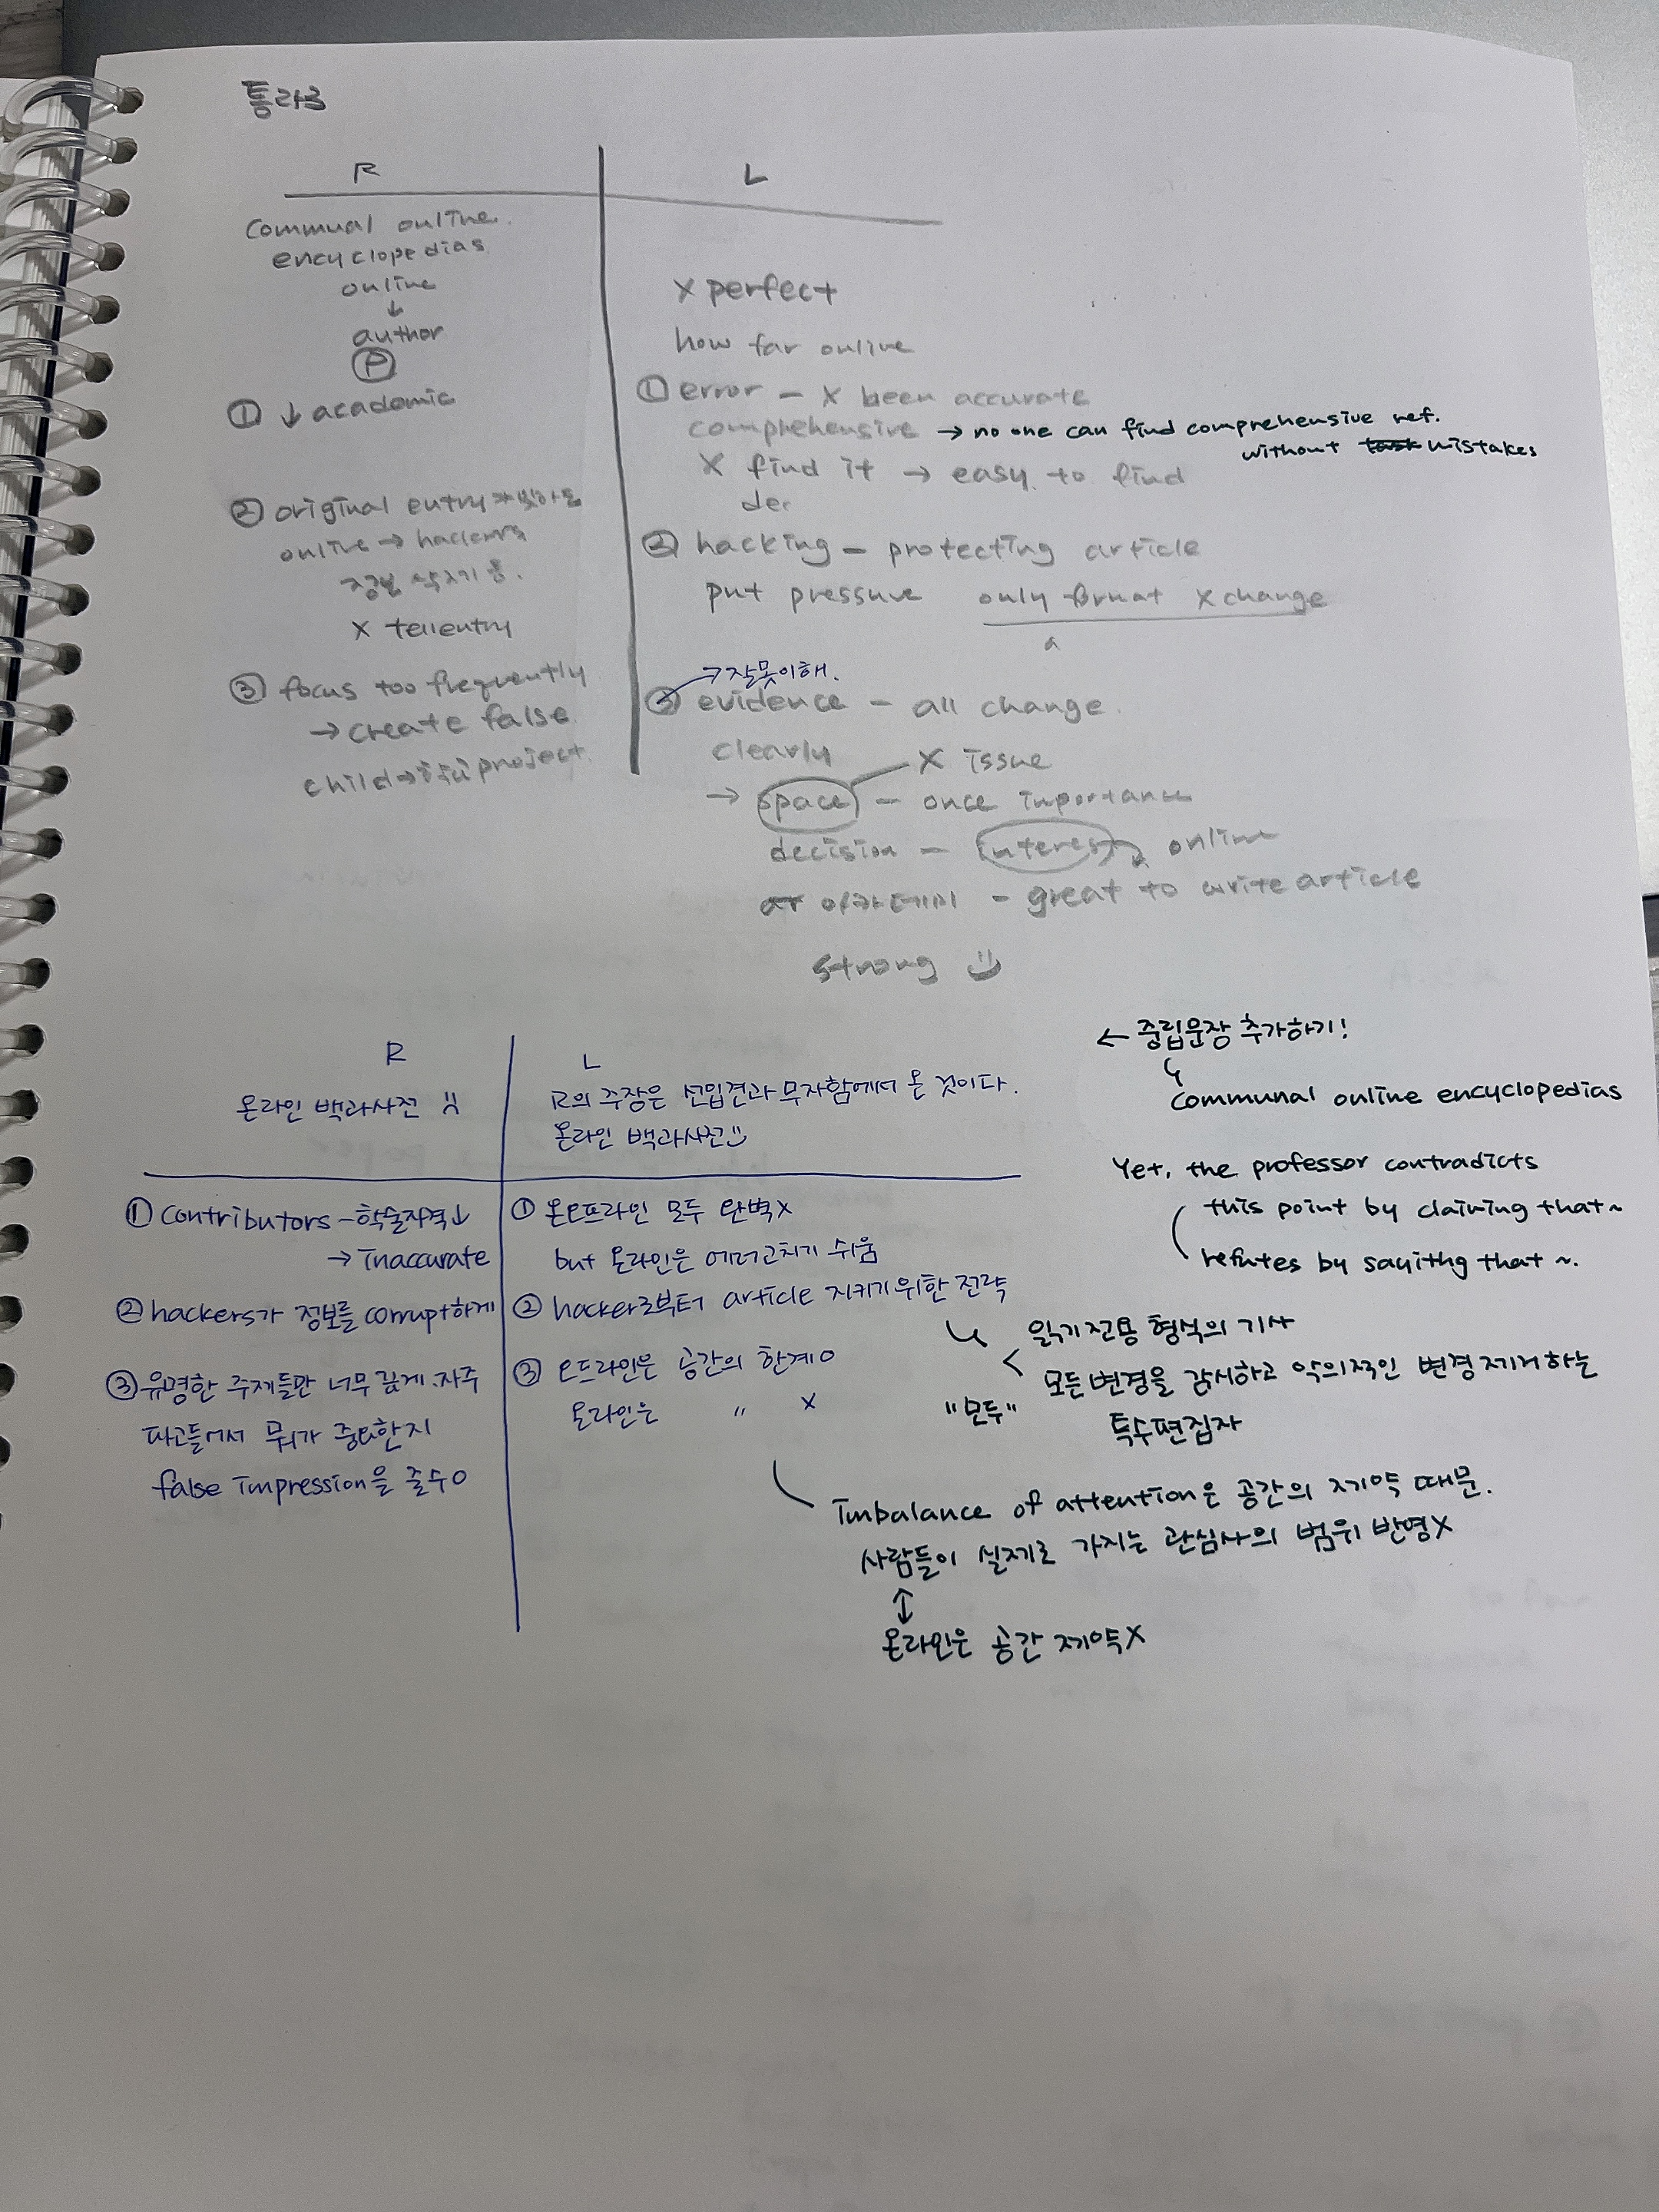 통라3
R
communal online
encyclopedias
online
↓
author
Ⓟ
① ↓ academic
② original entry
online → hackers
정보 삭제 등.
X tell entry
③ focus too frequently
→ create false
child → project
L
X perfect
how far online
① error - X been accurate
comprehensive → no one can find comprehensive ref.
without mistakes
X find it → easy to find
der
② hacking - protecting article
put pressure only format X change
a
→ 잘못이해.
③ evidence - all change.
clearly
X issue
→ space - once importance
decision - interest online
아카데미 - great to write article
strong
R
온라인 백과사전
① contributors - 학술자격↓
→ inaccurate
② hackers가 정보를 corrupt하게
③ 유명한 주제들만 너무 깊게·자주
파고들어서 뭐가 중요한지
false impression을 줄수O
L
R의 주장은 선입견과 무지함에서 온 것이다.
온라인 백과사전
① 온오프라인 모두 완벽X
but 온라인은 에러고치기 쉬움
② hacker로부터 article 지키기위한 전략
③ 오프라인은 공간의 한계O
온라인은 〃 X
← 중립문장 추가하기!
communal online encyclopedias
Yet, the professor contradicts
this point by claiming that~
refutes by sayithg that ~.
읽기전용 형식의 기사
모든변경을 감시하고 악의적인 변경제거하는
"모두"
특수편집자
Imbalance of attention은 공간의 제약 때문.
사람들이 실제로 가지는 관심사의 범위 반영X
↕
온라인은 공간 제약X